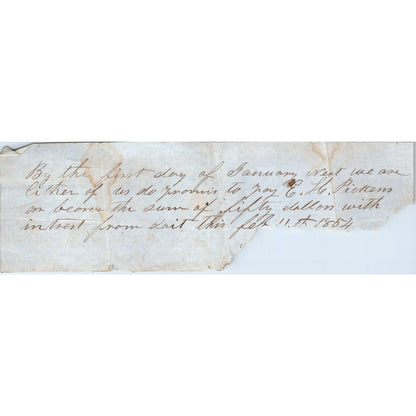 By the first day of January next we are
Either of us do promis to pay E. H. Pickens
or bearer the sum of fifty dollars with
intrest from dait this feb 11th 1854